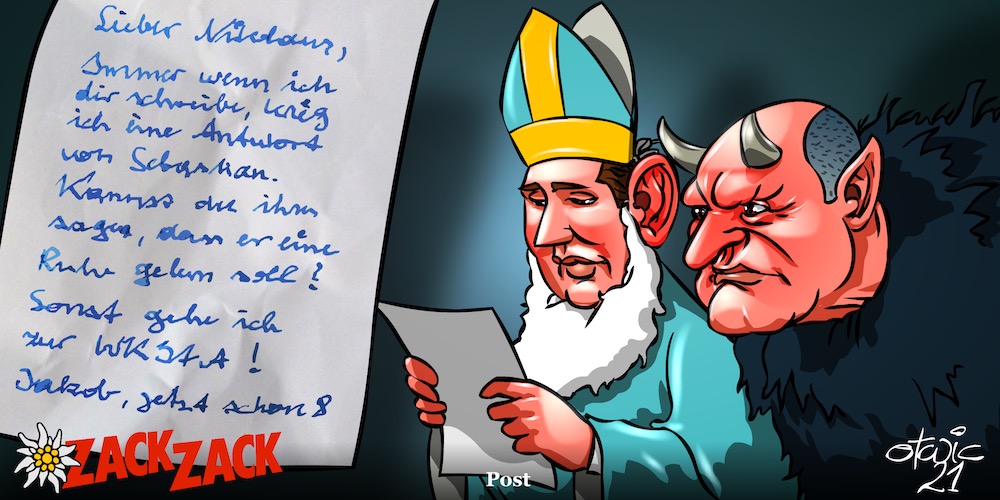 Lieber Nikolaus,
Immer wenn ich
dir schreibe, krieg
ich eine Antwort
von Sebastian.
Kannst du ihm
sagen, dass er eine
Ruhe geben soll?
Sonst gehe ich
zur WKStA!
Jakob, jetzt schon 8
ZACKZACK
Post
otovic
21